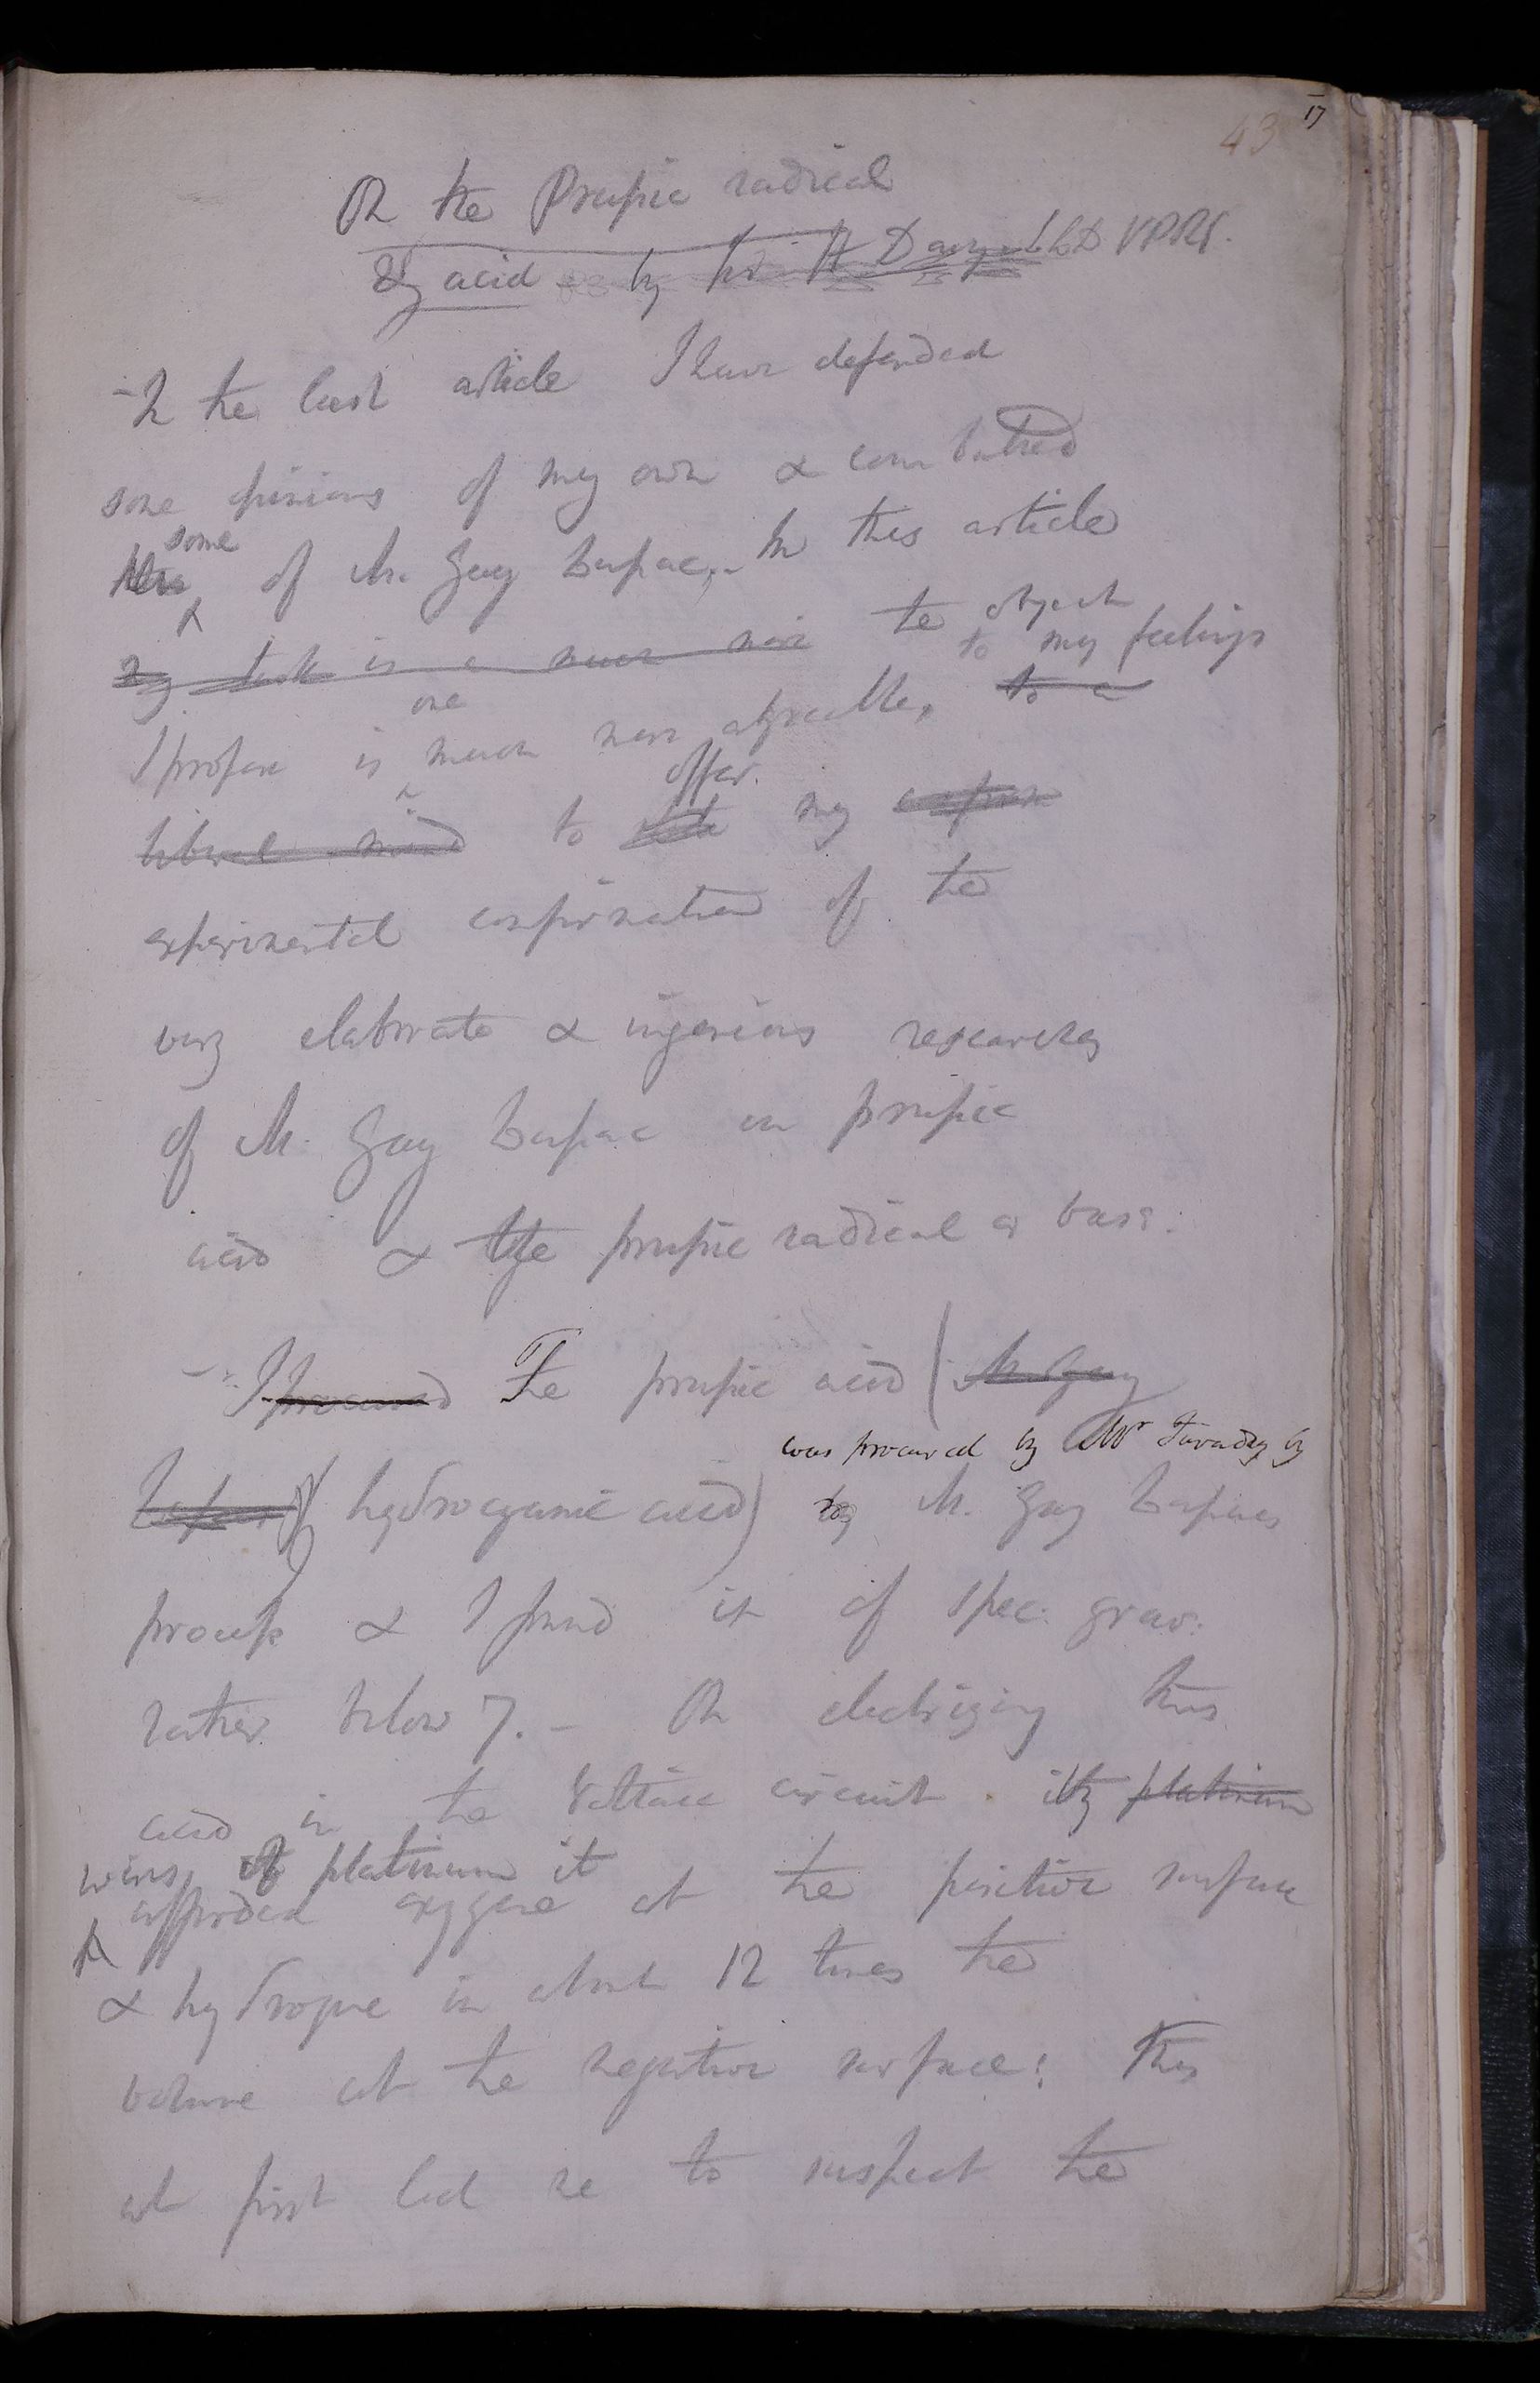 43 17
On the Prussic radical
& acid by Sir H Davy LLD. VPRS.
- In the last article I have defended
some opinions of my own & combatted
some
of M. Gay Lussac,- In this article
my task is a much more the object
to my feelings
one
I propose is much more agreeable, to a
offer.
liberal mind to my
experimental confirmation of the
very elaborate & ingenious researches
of M. Gay Lussac on prussic
acid & the prussic radical or basis.
- I procured The prussic acid ( M. Gay
was procured by Mr Faraday by
Lussac's hydrocyanic acid) by M. Gay Lussacs
process & I found it of spec: grav:
rather below 7. - On electrizing this
acid in the Voltaic circuit by platinum
wires of platinum it
afforded oxygene at the positive surface
& hydrogene in about 12 times the
volume at the negative surface: this
at first led me to suspect the